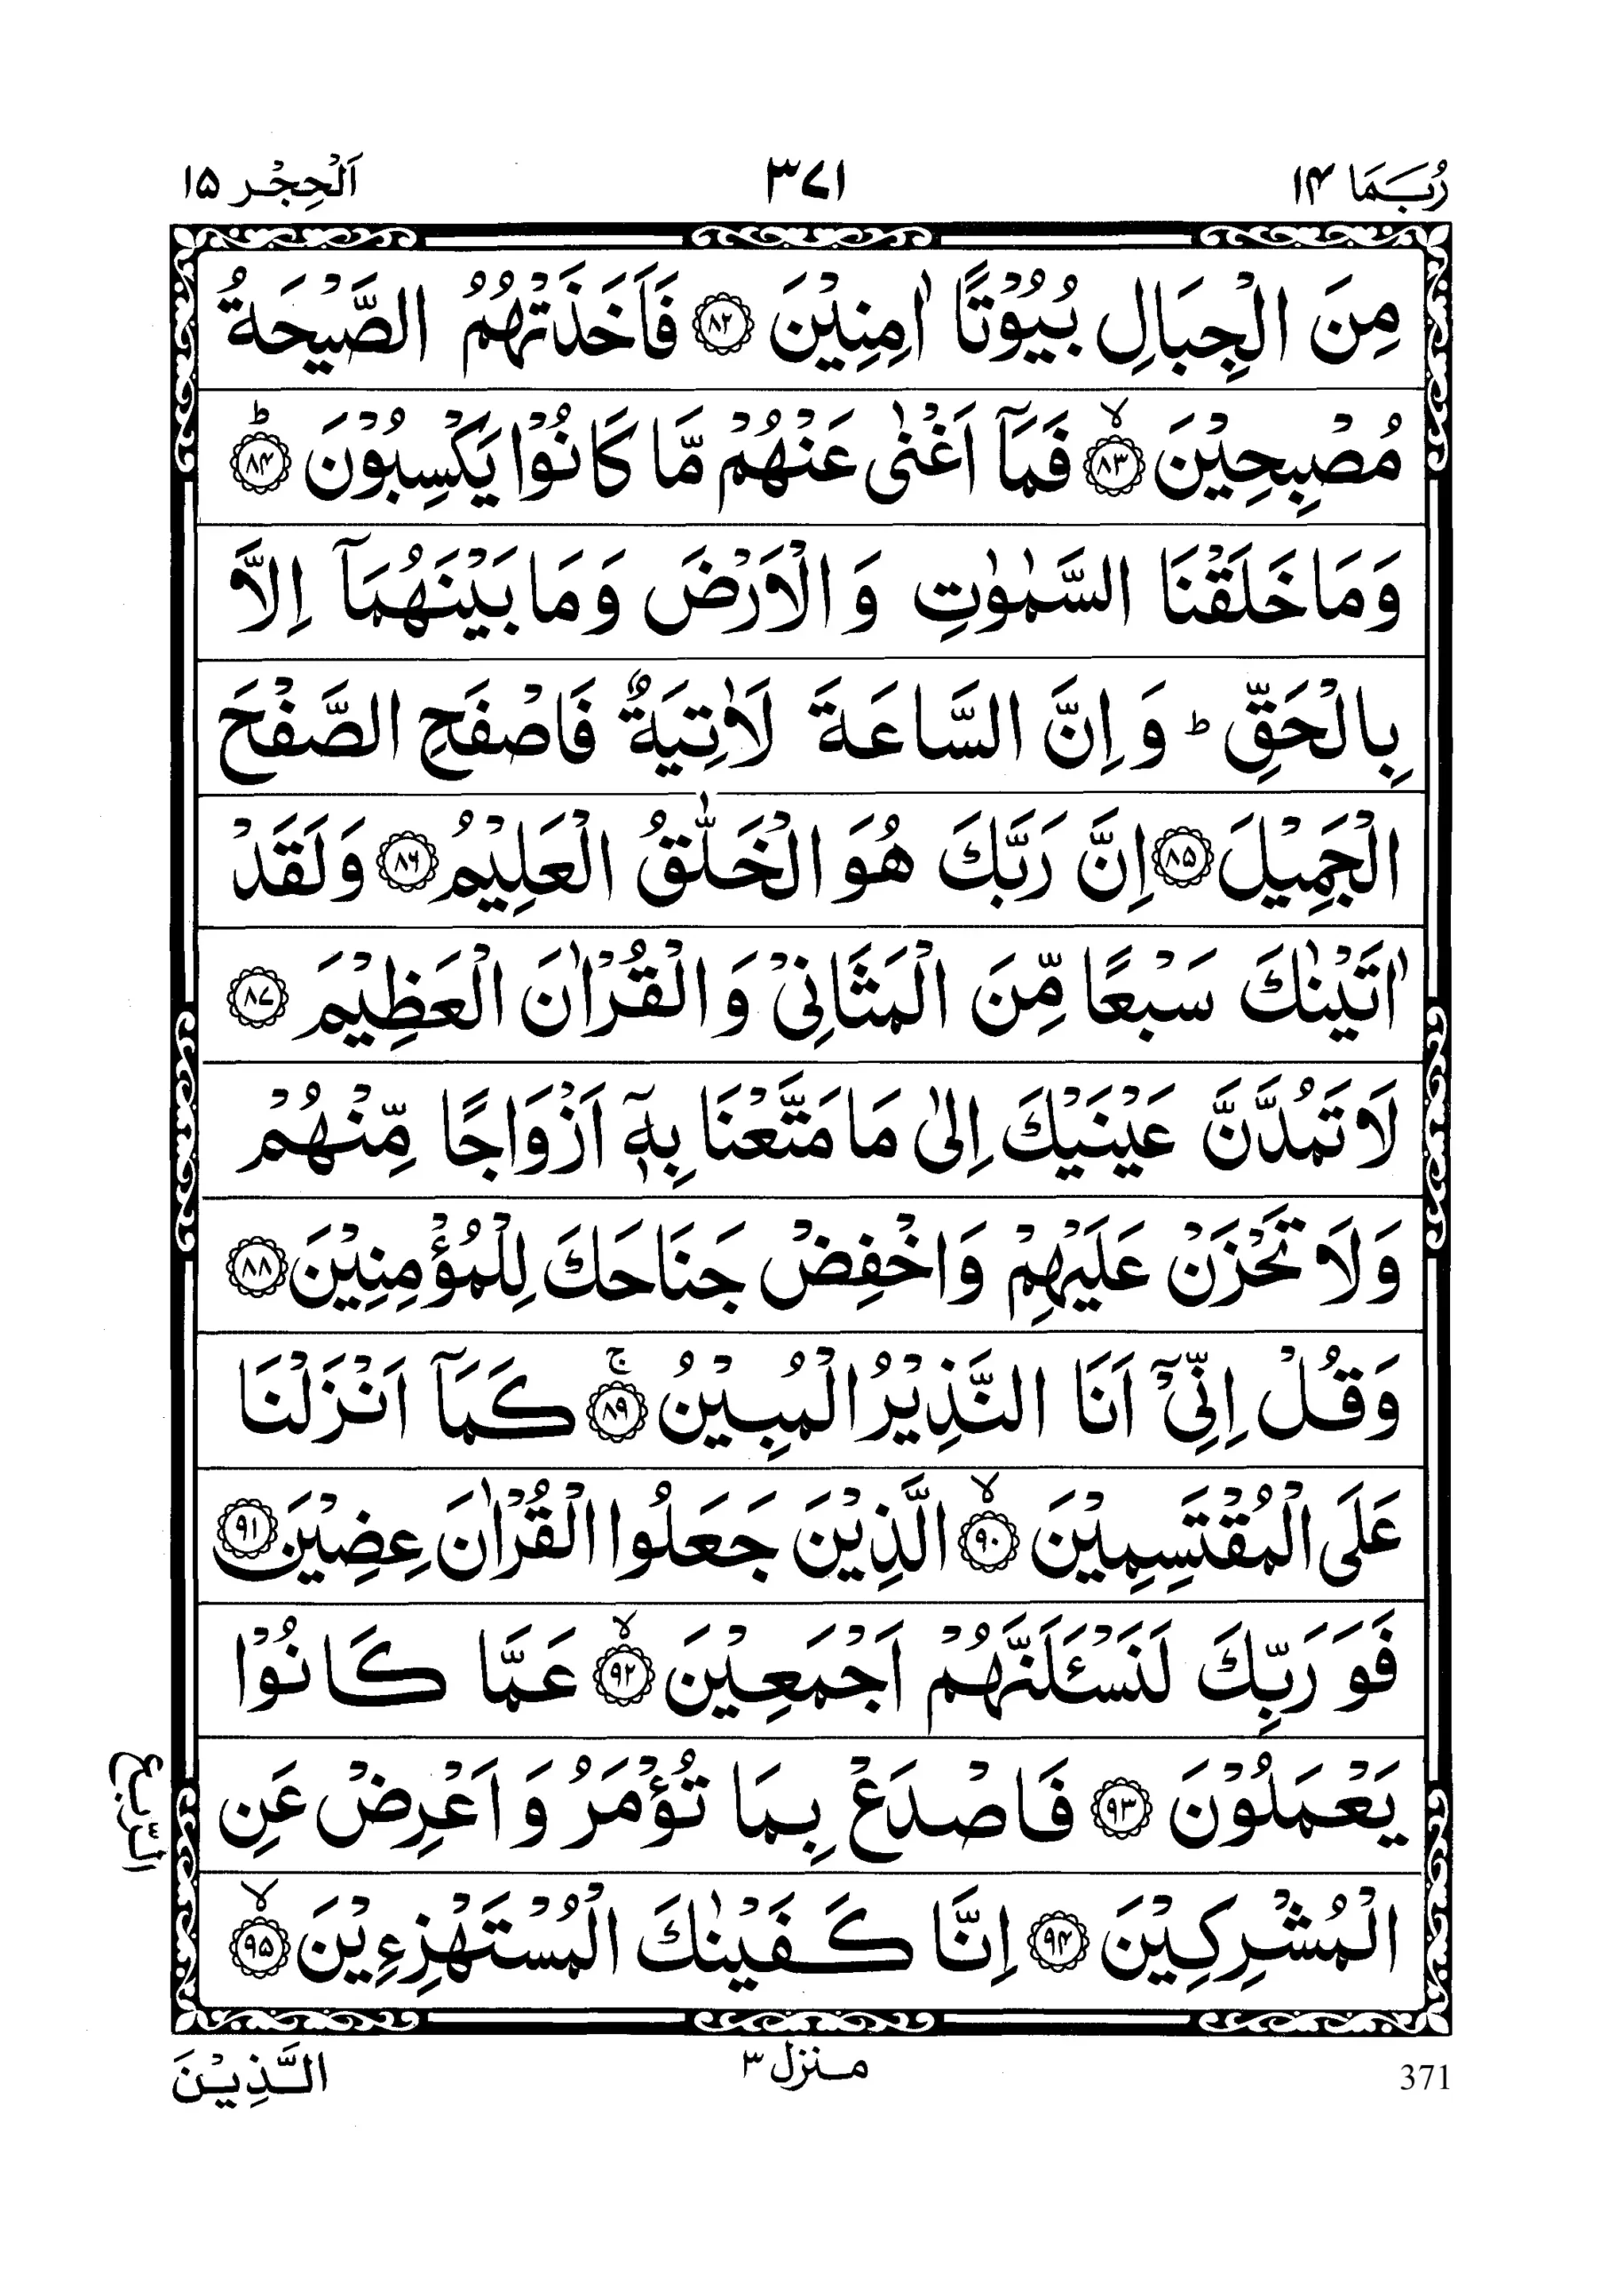 رُبَمَا ۱۴
۳۷۱
اَلْحِجْر ۱۵
مِنَ الْجِبَالِ بُيُوْتًا اٰمِنِيْنَ ﴿۸۲﴾ فَاَخَذَتْهُمُ الصَّيْحَةُ
مُصْبِحِيْنَ ﴿۸۳﴾ۙ فَمَاۤ اَغْنٰى عَنْهُمْ مَّا كَانُوْا يَكْسِبُوْنَ ﴿۸۴﴾ؕ
وَمَا خَلَقْنَا السَّمٰوٰتِ وَالْاَرْضَ وَمَا بَيْنَهُمَاۤ اِلَّا
بِالْحَقِّ ؕ وَاِنَّ السَّاعَةَ لَاٰتِيَةٌ فَاصْفَحِ الصَّفْحَ
الْجَمِيْلَ ﴿۸۵﴾ اِنَّ رَبَّكَ هُوَ الْخَلّٰقُ الْعَلِيْمُ ﴿۸۶﴾ وَلَقَدْ
اٰتَيْنٰكَ سَبْعًا مِّنَ الْمَثَانِيْ وَالْقُرْاٰنَ الْعَظِيْمَ ﴿۸۷﴾
لَا تَمُدَّنَّ عَيْنَيْكَ اِلٰى مَا مَتَّعْنَا بِهٖۤ اَزْوَاجًا مِّنْهُمْ
وَلَا تَحْزَنْ عَلَيْهِمْ وَاخْفِضْ جَنَاحَكَ لِلْمُؤْمِنِيْنَ ﴿۸۸﴾
وَقُلْ اِنِّيْۤ اَنَا النَّذِيْرُ الْمُبِيْنُ ﴿۸۹﴾ۚ كَمَاۤ اَنْزَلْنَا
عَلَى الْمُقْتَسِمِيْنَ ﴿۹۰﴾ۙ الَّذِيْنَ جَعَلُوا الْقُرْاٰنَ عِضِيْنَ ﴿۹۱﴾
فَوَرَبِّكَ لَنَسْـَٔلَنَّهُمْ اَجْمَعِيْنَ ﴿۹۲﴾ۙ عَمَّا كَانُوْا
يَعْمَلُوْنَ ﴿۹۳﴾ فَاصْدَعْ بِمَا تُؤْمَرُ وَاَعْرِضْ عَنِ
الرّبع
الْمُشْرِكِيْنَ ﴿۹۴﴾ اِنَّا كَفَيْنٰكَ الْمُسْتَهْزِءِيْنَ ﴿۹۵﴾ۙ
371
منزل ۳
الَّذِيْنَ